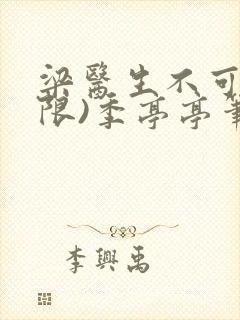 梁醫生不可
限)季亭亭筆
李興禹